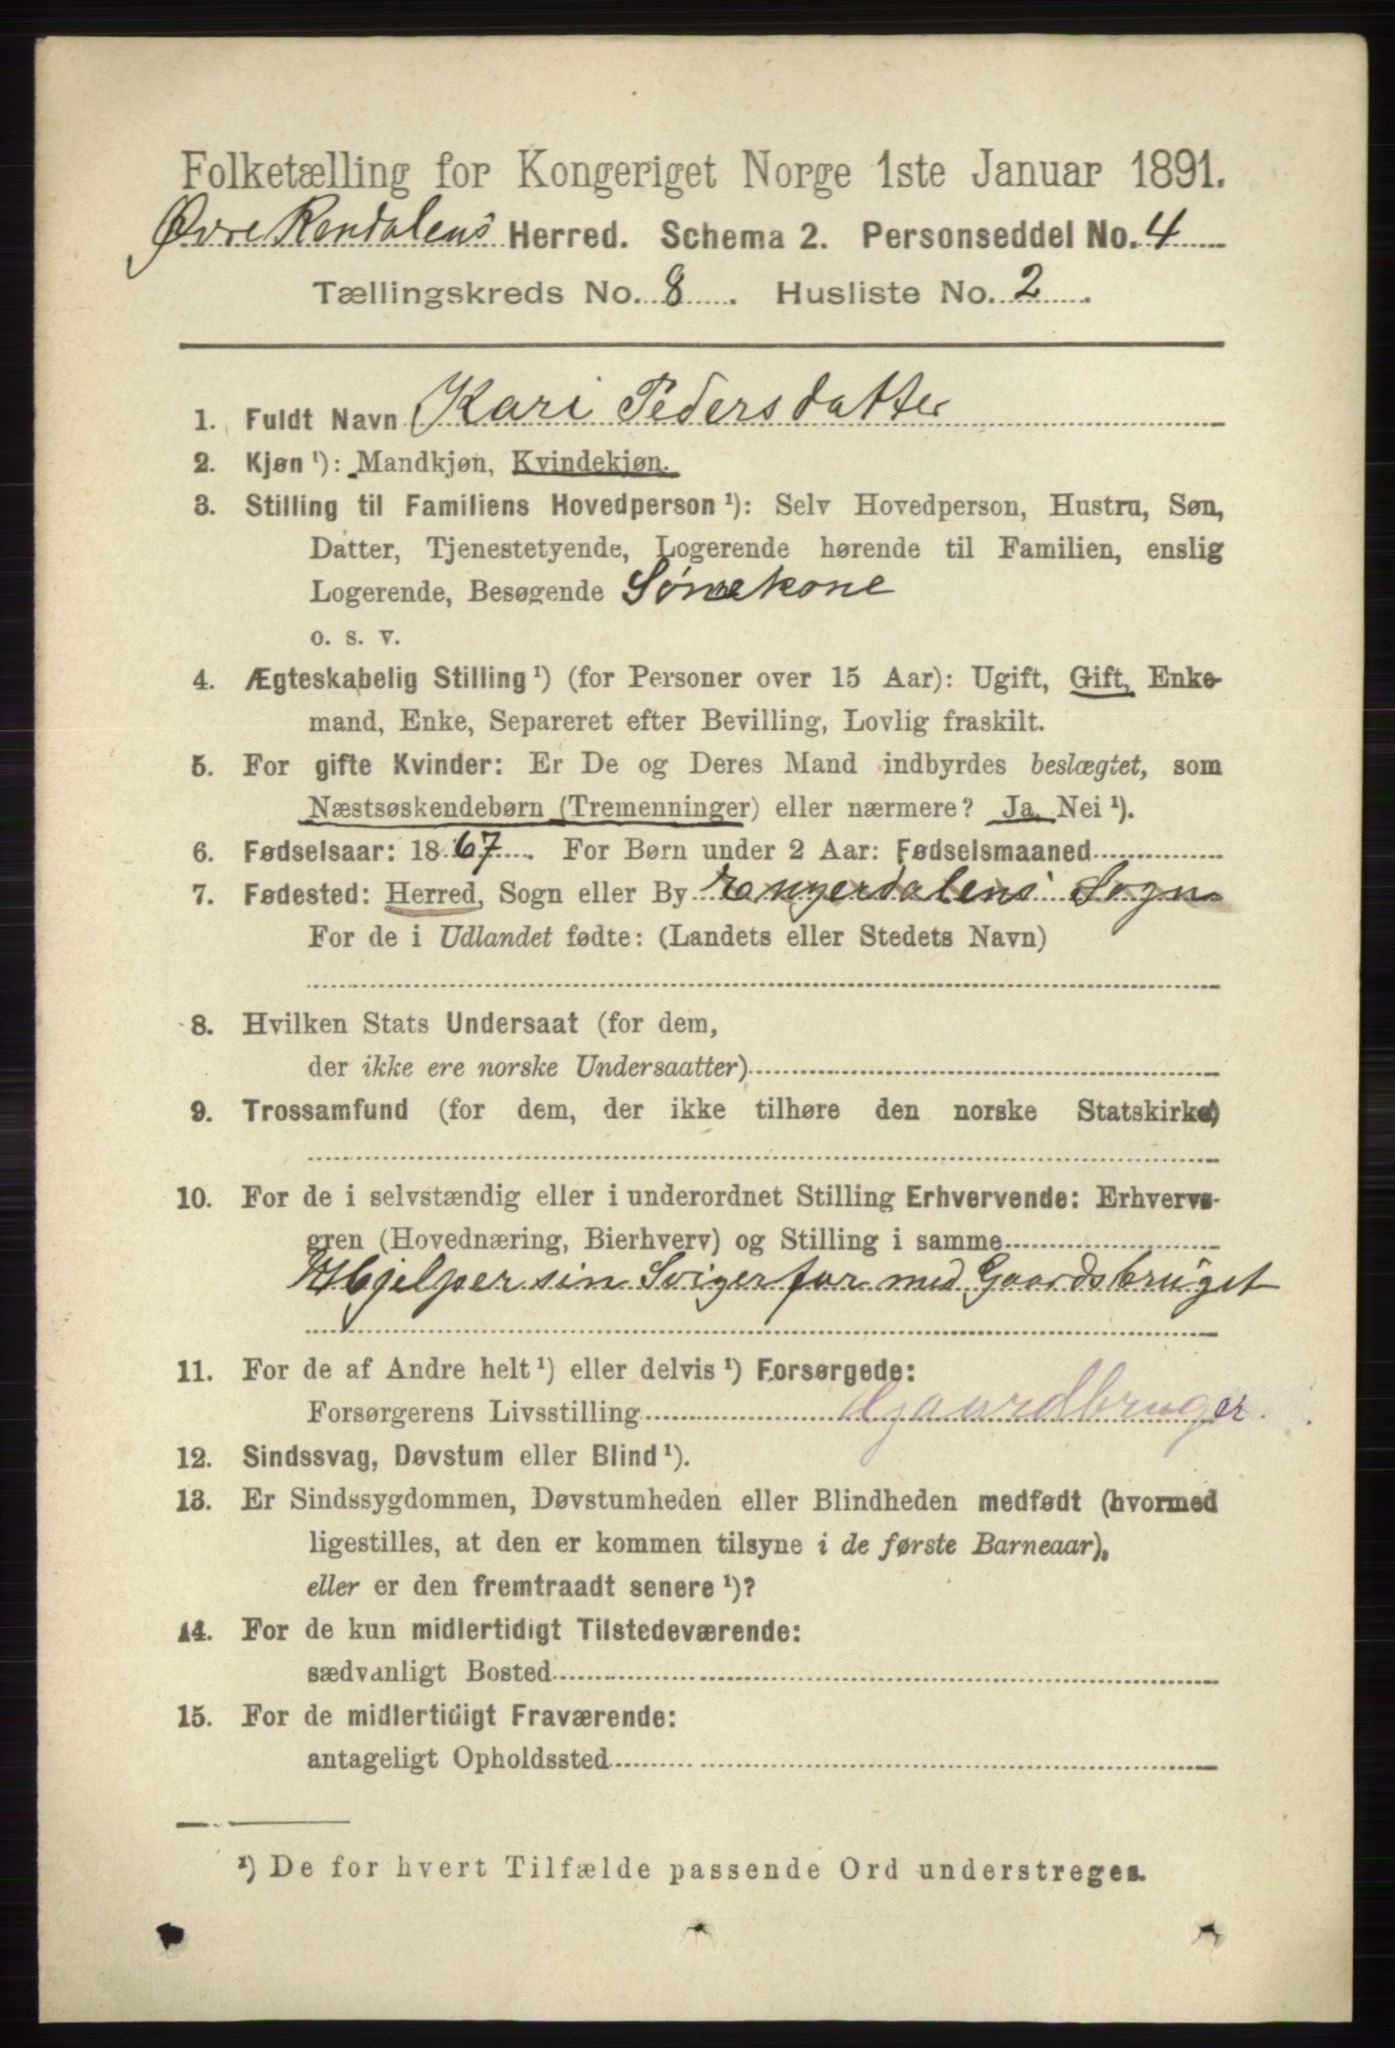 Folketælling for Kongeriget Norge 1ste Januar 1891.
Øvre Rendalens Herred. Schema 2. Personseddel No. 4
Tællingskreds No. 8. Husliste No. 2.
1. Fuldt Navn Kari Pedersdatter
2. Kjøn ¹): Mandkjøn, Kvindekjøn.
3. Stilling til Familiens Hovedperson ¹): Selv Hovedperson, Hustru, Søn,
Datter, Tjenestetyende, Logerende hørende til Familien, enslig
Logerende, Besøgende Sønekone
o. s. v.
4. Ægteskabelig Stilling ¹) (for Personer over 15 Aar): Ugift, Gift, Enke-
mand, Enke, Separeret efter Bevilling, Lovlig fraskilt.
5. For gifte Kvinder: Er De og Deres Mand indbyrdes beslægtet, som
Næstsøskendebørn (Tremenninger) eller nærmere? Ja, Nei ¹).
6. Fødselsaar: 1867. For Børn under 2 Aar: Fødselsmaaned
7. Fødested: Herred, Sogn eller By Engerdalens Sogn
For de i Udlandet fødte: (Landets eller Stedets Navn)
8. Hvilken Stats Undersaat (for dem,
der ikke ere norske Undersaatter)
9. Trossamfund (for dem, der ikke tilhøre den norske Statskirke)
10. For de i selvstændig eller i underordnet Stilling Erhvervende: Erhvervs-
gren (Hovednæring, Bierhverv) og Stilling i samme
Hjelper sin Svigerfar med Gaardsbruget
11. For de af Andre helt ¹) eller delvis ¹) Forsørgede:
Forsørgerens Livsstilling Gaardbruger.
12. Sindssvag, Døvstum eller Blind ¹).
13. Er Sindssygdommen, Døvstumheden eller Blindheden medfødt (hvormed
ligestilles, at den er kommen tilsyne i de første Barneaar),
eller er den fremtraadt senere ¹)?
14. For de kun midlertidigt Tilstedeværende:
sædvanligt Bosted
15. For de midlertidigt Fraværende:
antageligt Opholdssted
¹) De for hvert Tilfælde passende Ord understreges.